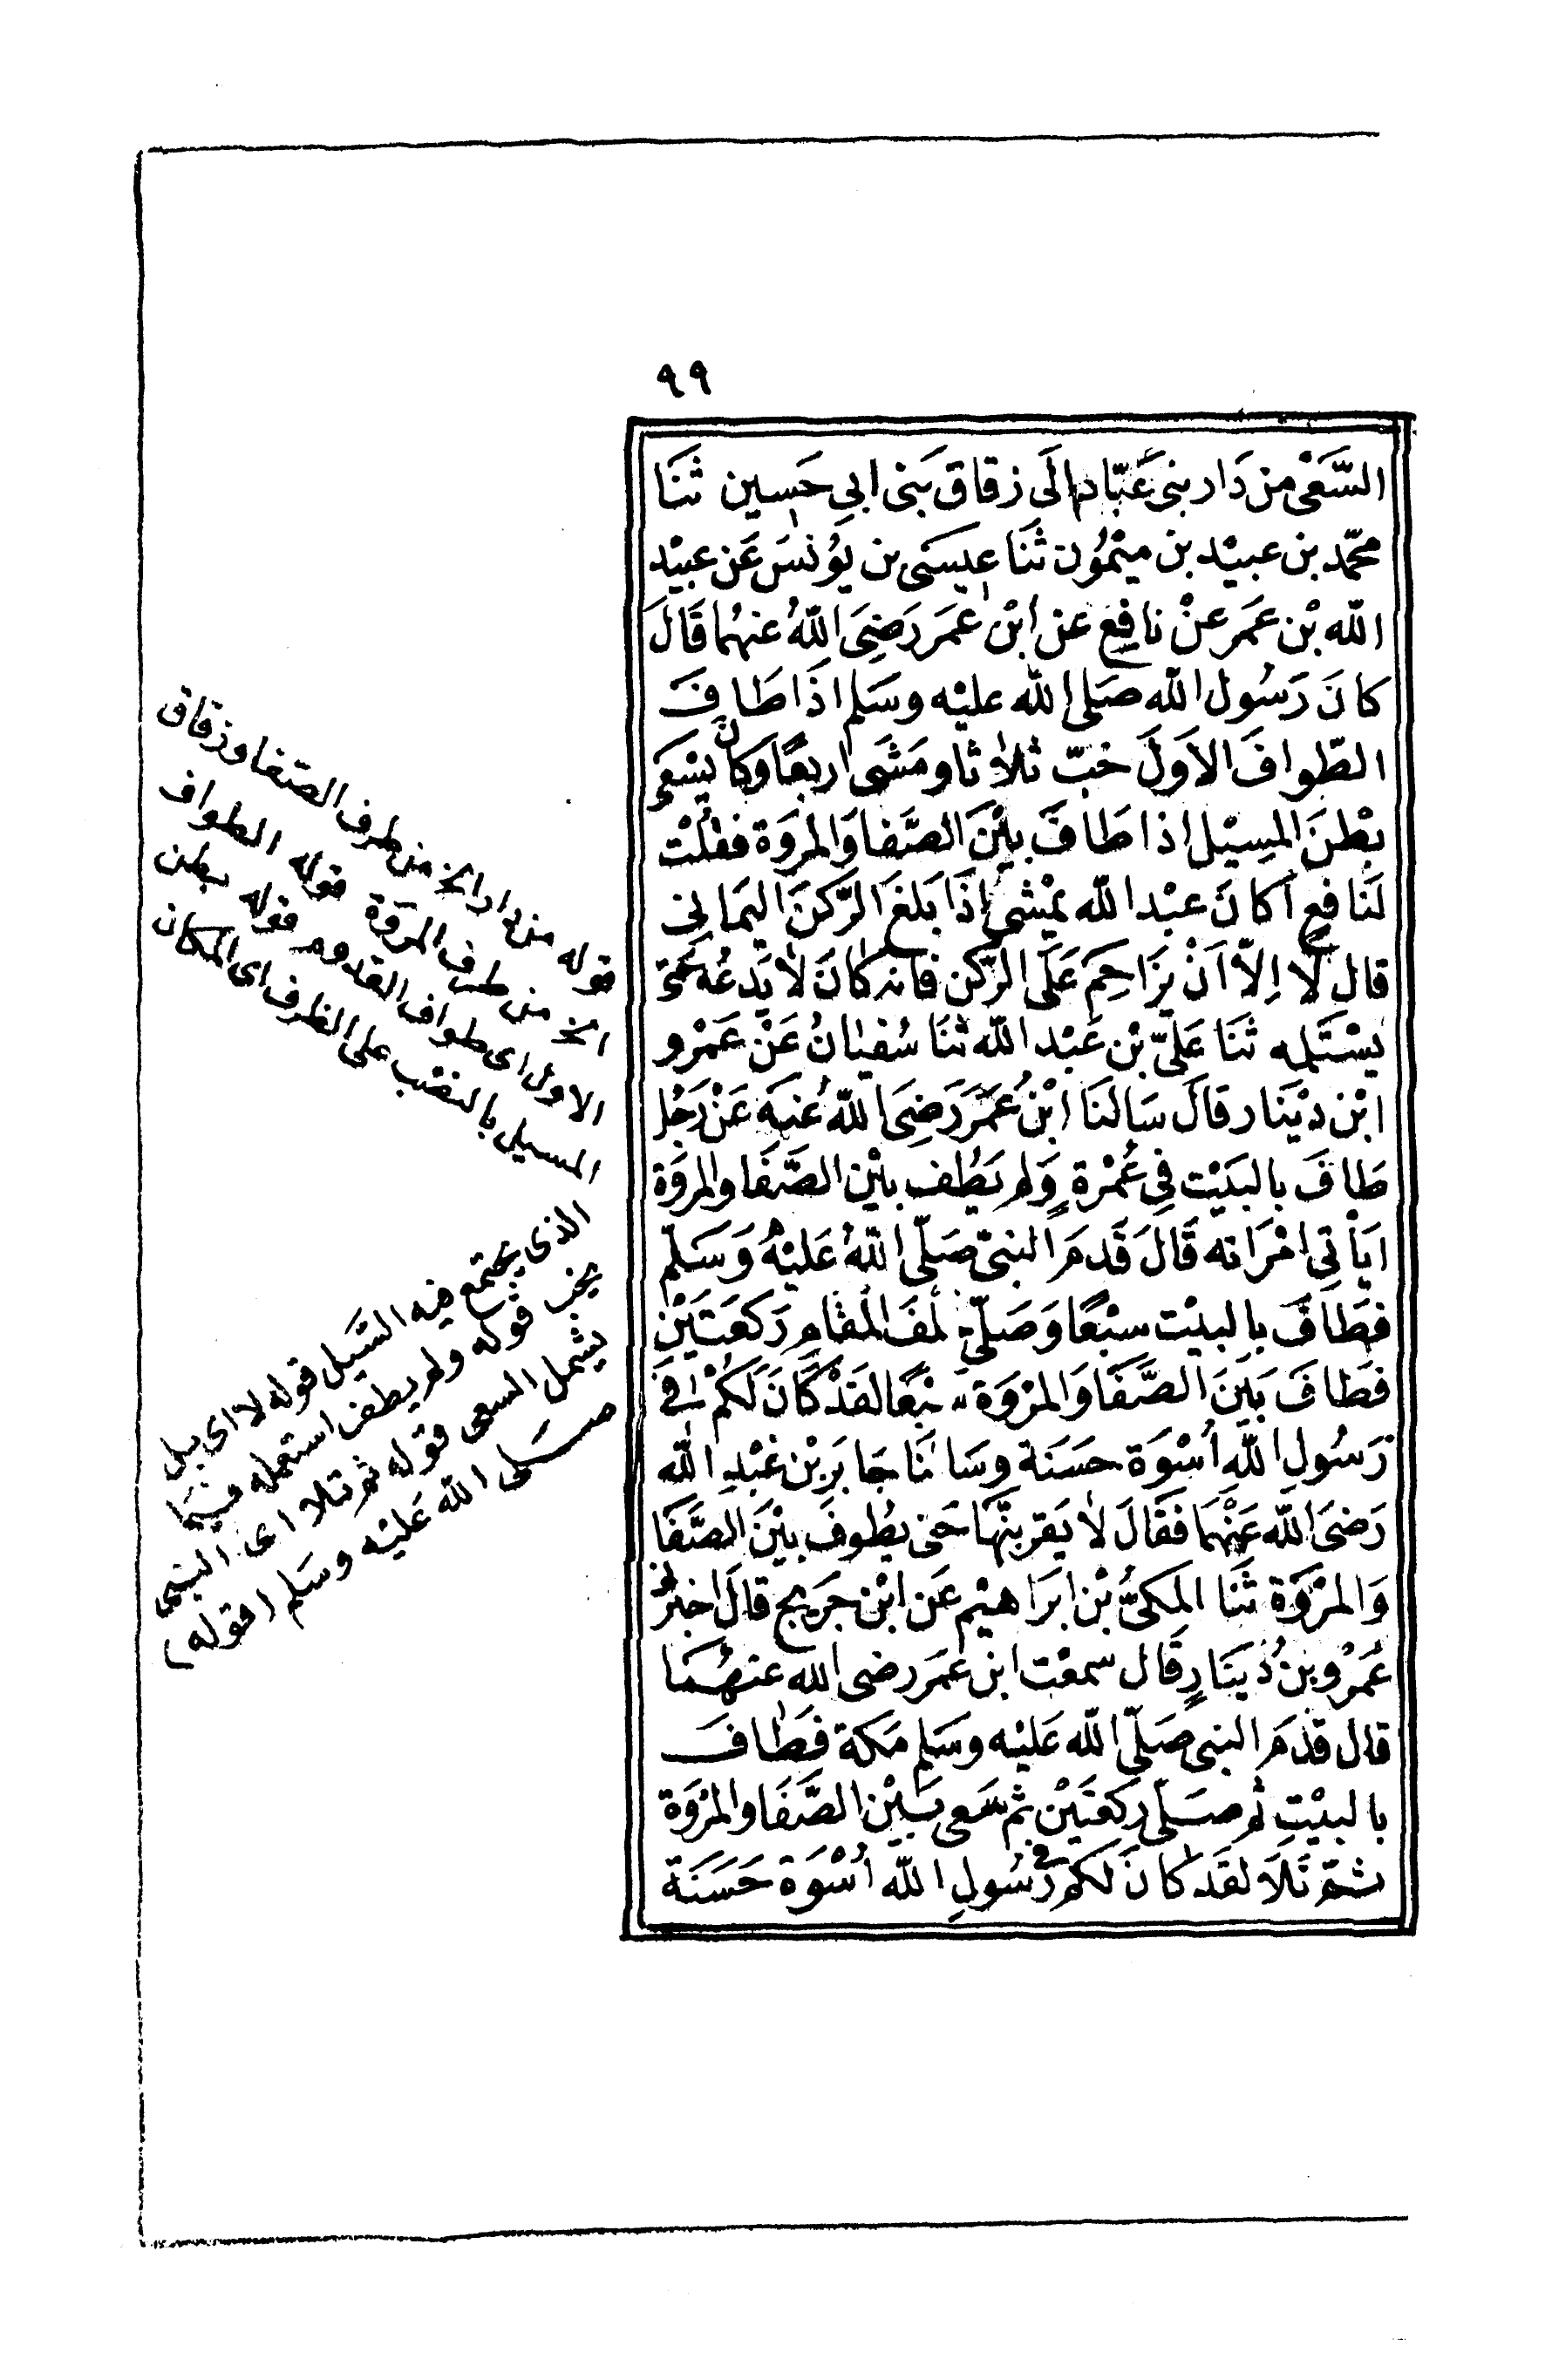 ٩٩
السَّعْى من دَار بنى عَبّاد الَى زقاق بَنى ابى حسين ثَنَا
محمّد بن عبيْد بن ميْمُون ثَنَا عيسَى بن يُونُسَ عَن عبيْد
الله بْن عمَر عنْ نافِع عن ابْن عمَر رَضِىَ اللهُ عنهُما قَالَ
كانَ رَسُول الله صَلى الله عليْه وسَلم اذَا طَافَ
الطّوافَ الاَولَ خبّ ثلاثا ومَشَى اربعًا وكانَ يسْعَى
بطْنَ المسِيْل اذا طَافَ بيْنَ الصَّفا وَالمروَة فقلْت
لنَافع اكانَ عبْد الله يمْشى اذَا بَلغَ الرّكنَ اليمَانى
قال لَا اِلاّ اَنْ يزَاحمَ عَلَى الرّكن فانه كانَ لاَ يَدعُه حَتى
يسْتَلمه ثَنَا عَلىّ بْن عَبْد الله ثَنَا سُفيانُ عَنْ عَمْرو
ابْن ديْنَار قالَ سَالنَا ابْنُ عُمَرَ رَضِىَ اللهُ عنهُ عَنْ رَجُل
طَافَ بالبَيْت فى عُمْرةٍ وَلم يَطُف بيْن الصَّفَا والمروَة
ايَأْتى امْرَاته قَالَ قَدمَ النبىّ صَلّى اللهُ عَليْهُ وَسَلّم
فطَافَ بالبيْت سبْعًا وَصَلّى خلفَ المقَام رَكعَتَيْن
فطَافَ بَينَ الصَّفَا وَالمرْوَة سبْعًا لقَدْ كَانَ لَكمْ فى
رَسُولِ اللهِ اُسْوَة حسَنَة وسَالنَا جَابرَ بْن عبْدِ الله
رَضىَ الله عَنْهُمَا فقَالَ لاَ يَقربنّهَا حَتى يطُوفَ بيْنَ الصَّفَا
وَالمرْوَة ثَنَا المكىُّ بْن ابرَاهيْم عَن ابْن جرَيج قالَ اخبرنى
عَمْرُو بنُ دُينَارٍ قَال سمعْت ابن عمَر رضى الله عنهُمَا
قال قدمَ النبى صَلّى الله عَليْه وسَلم مَكة فَطَافَ
بالبيْتِ ثم صَلّى ركعتَيْن ثم سَعى بَيْن الصَّفَا والمرْوَة
ثمّ تَلاَ لقَد كانَ لكم فى رَسُولِ الله اُسْوَة حَسَنَة
قوله من دار الخ من طرف الصّفا وزقاق
الخ من طرف المروَة قوله الطواف
الاول اى طواف القدوم قوله بطن
المسيل بالنصْب على الظرف اى المكان
الذى يجتمع فيه السَّيل قوله لا اى بل
يخب قوله ولم يطف استعمله فيمَا
يشمل السعى قوله ثم تلا اى النبى
صَلى الله عَليْه وسَلم (قوله)